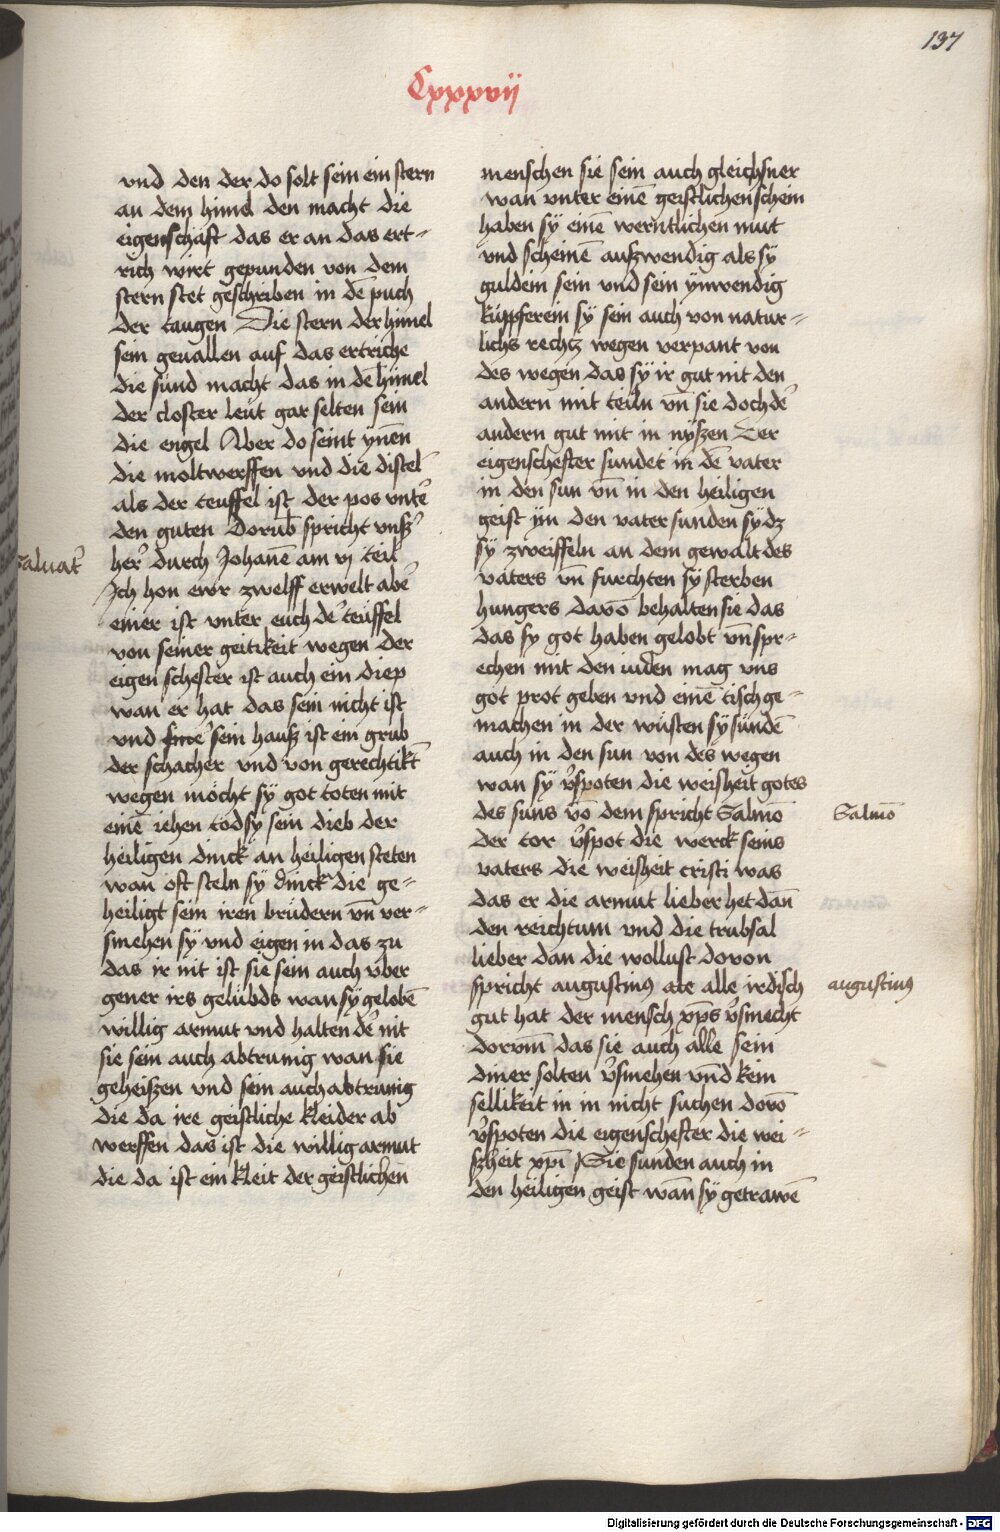 137
Cxxxvij
vnd den der do solt sein ein stern
an dem himel den macht die
eigenschaft das er an das ert-
rich wirt gepunden von dem
stern stet geschriben in dē puch
der taugen Die stern der himel
sein geuallen auf das ertriche
die sünd macht das in dē hūmel
der closter leüt gar selten sein
die engel Aber do seint ynen
die moltwerffen vnd die distel
als der teuffel ist der pos vnter
den guten Dorub spricht vnßer
saluat̓
her̓ durch Johanē am vj teil
Ich hon ewr zwelff erwelt abe̓
einer ist vnter euch de̓ teüffel
von seiner geitikeit wegen der
eigenschefter ist auch ein diep
wan er hat das sein nicht ist
vnd sein hauß ist ein grub
der schacher vnd von gerechtikt̄
wegen möcht sy got toten mit
einē iehen tod sy sein dieb der
heiligen dinck an heiligen steten
wan oft steln sy dinck die ge-
heiligt sein iren brüdern vn̄ ver-
smehen sy vnd eigen in das zu
das ir nit ist sie sein auch vber
gener irs gelübds wan sy gelobē
willig armut vnd halten de̓ nit
sie sein auch abtrunig wan sie
geheißen vnd sein auch abtrunig
die da ire geistliche kleider ab
werffen das ist die willig armut
die da ist ein kleit der geistlichen
menschen sie sein auch gleichsner
wan vnter einē geistlichen schein
haben sy einē werntlichen mut
vnd scheinē außwendig als sÿ
guldein sein vnd sein ynwendig
küpferein sy sein auch von natur-
lichs rechtz wegen verpant von
des wegen das sy ir gut nit den
andern mit teiln vn̄ sie doch de̓
andern gut mit in nyßen Der
eigenschefter sundet in dē vater
in den sun vn̄ in den heiligen
geist ym den vater sunden sy dz
sy zweiffeln an dem gewalt des
vaters vn̄ furchten sy sterben
hungers davō behalten sie das
das sy got haben gelobt vn̄ spr-
echen mit den iuden mag vns
got prot geben vnd einē tisch ge-
machen in der wüsten sy sündē
auch in den sun von des wegen
wan sÿ v̓spoten die weisheit gotes
des suns vō dem spricht Salmō
Salmō
der tor v̓spot die werck seins
vaters die weisheit cristi was
das er die armut lieber het dan̄
den reichtum vnd die trubsal
lieber dan die wollust dovon
spricht augustinus ale alle irdisch
augustinus
gut hat der mensch xp̄s v̓smecht
dorvm̄ das sie auch alle sein
diner solten v̓smehen vn̄d kein
sellikeit in in nicht suchen dorō
v̓spoten die eigenschefter die wei-
ßheit xp̄i Sie sunden auch in
den heiligen geist wan̄ sy getrawē
Digitalisierung gefördert durch die Deutsche Forschungsgemeinschaft - DFG